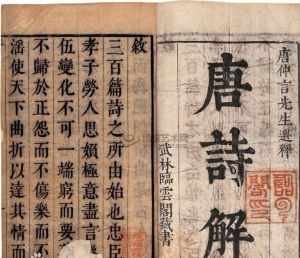 唐仲言先生選釋
唐詩解
武林臨雲閣藏書
敘
三百篇詩之所由始也忠臣
孝子勞人思婦極意盡言
伍變化不可一端窮而要
不歸於正怨而不傷樂而不
滛使天下曲折以達其情而